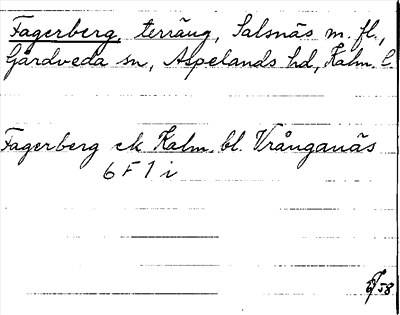 Fagerberg, terräng, Salsnäs m. fl.,
Gårdveda sn, Aspelands hd, Kalm. l.
Fagerberg ek Kalm. bl. Vrånganäs
6 F 1 i
58